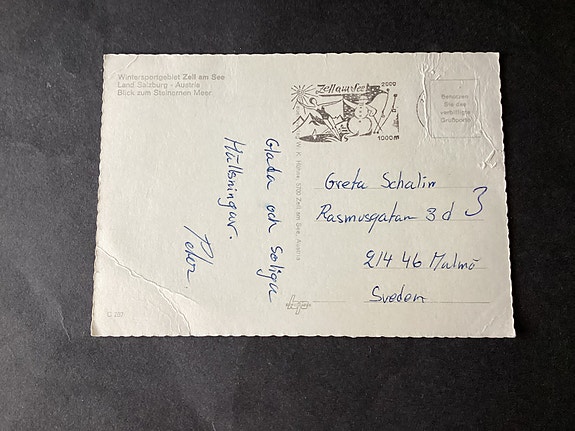 Wintersportgebiet Zell am See
Land Salzburg - Austria
Blick zum Steinernen Meer
Zell am See
2000
1000m
Benützen
Sie das
verbilligte
Grußporto
Glada och soliga
Hälsningar.
Peter.
W. K. 5700 Zell am See, Austria
Greta Schalin
Rasmusgatan 3 d
3
214 46 Malmö
Sveden